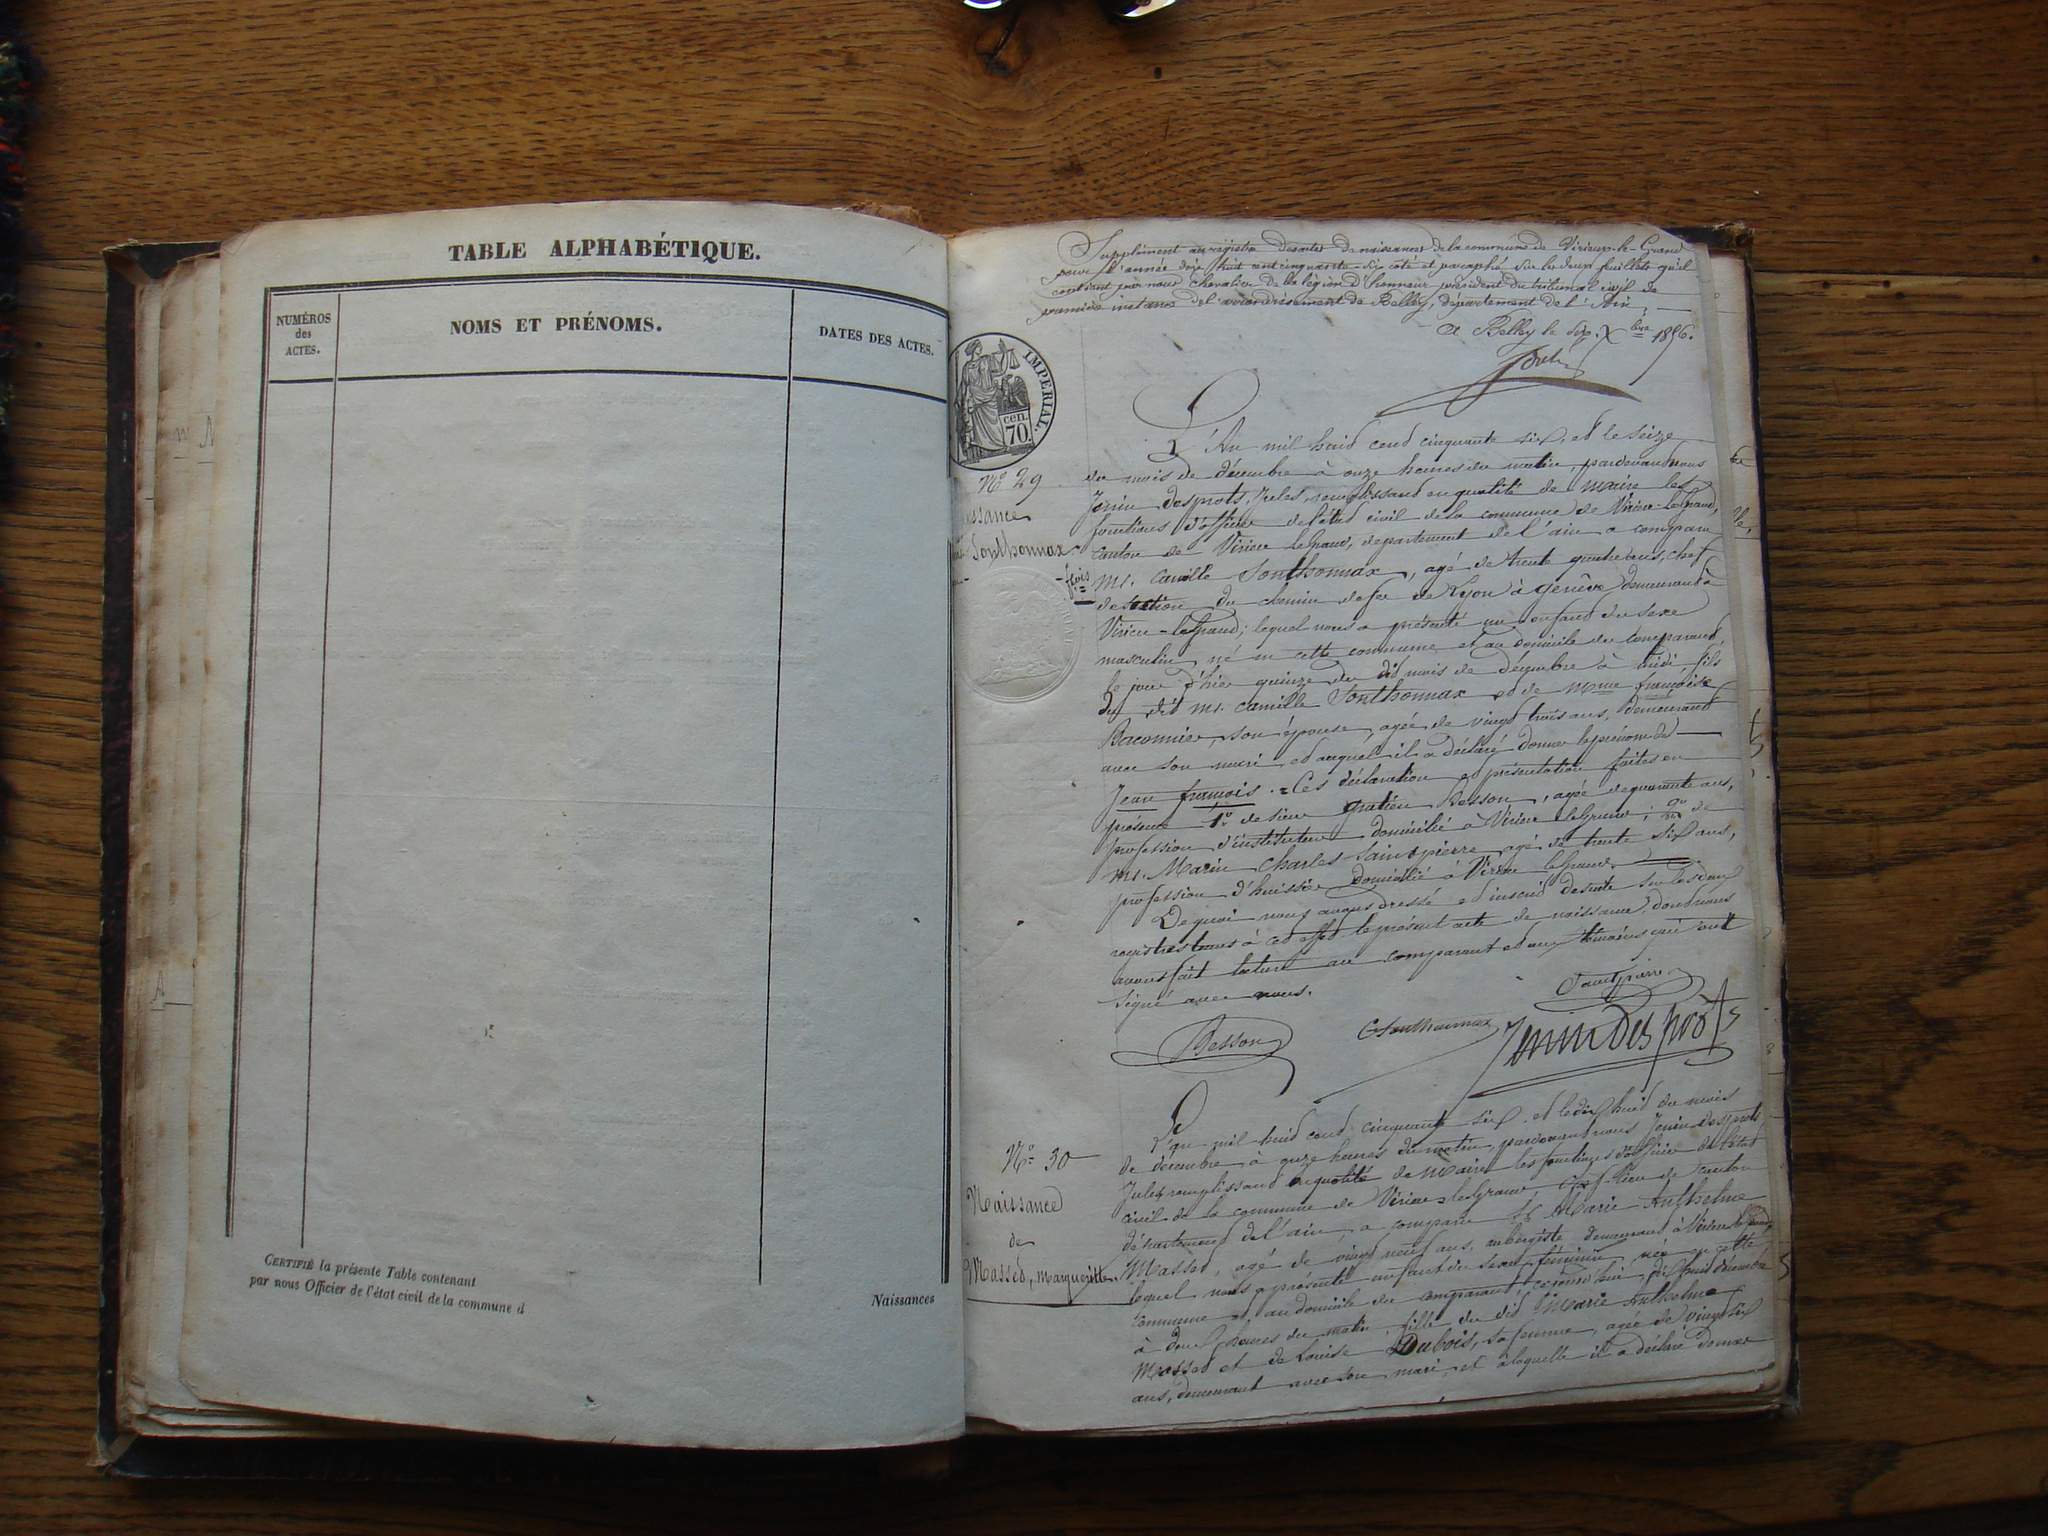 TABLE ALPHABÉTIQUE.
NUMÉROS
des
ACTES.
NOMS ET PRÉNOMS.
DATES DES ACTES.
CERTIFIÉ la présente Table contenant
par nous Officier de l'état civil de la commune d
Naissances
Supplément au registre des actes de naissances de la commune de Virieu-le-Grand
pour l'année dix huit cent cinquante-six coté et paraphé sur les deux feuillets qu'il
contient par nous chevalier de la légion d'honneur président du tribunal civil de
première instance de l'arrondissement de Belley, département de l'Ain,
A Belley le six Xbre 1856.
IMPERIAL.
cen.
70.
No 29
Sonthonnax
L'An mil huit cent cinquante six, et le seize
du mois de décembre à onze heures du matin, pardevant nous
Jenin desprots, Jules, remplissant en qualité de maire les
fonctions d'officier de l'état civil de la commune de Virieu-le-Grand,
canton de Virieu le Grand, département de l'ain a comparu
mr. Camille Sonthonnax, agé de trente quatre ans, chef
de section du chemin de fer de Lyon à genève demeurant à
Virieu-le-Grand; lequel nous a présenté un enfant du sexe
masculin né en cette commune et au domicile du comparant,
le jour d'hier quinze du dit mois de décembre à midi, fils
du dit mr. Camille Sonthonnax et de mme françoise
Baconnier, son épouse, agée de vingt trois ans, demeurant
avec son mari, et auquel il a déclaré donner le prénom de
Jean françois. Les déclaration et présentation faites en
présence 1o de sieur gratien Besson, agé de quarante ans,
profession d'instituteur domicilié à Virieu le Grand; 2o de
mr. Marin Charles Saintpierre, agé de trente six ans,
profession d'huissier domicilié à Virieu le Grand.
De quoi nous avons dressé et inscrit de suite sur les deux
registres tenus à cet effet le présent acte de naissance, dont nous
avons fait lecture au comparant et aux témoins qui ont
signé avec nous.
Saintpierre
Besson
CSonthonnax
Jenin Desprots
No 30
Naissance
de
Massed, Margueritte.
L'an mil huit cent cinquante six et le dix huit du mois
de décembre à onze heures du matin, pardevant nous Jenin desprots
Jules remplissant en qualité de Maire les fonctions d'officier de l'état
civil de la commune de Virieu-le-Grand chef-lieu de canton
département de l'ain, a comparu Marie Anthelme
Massed, agé de vingt neuf ans, aubergiste demeurant à Virieu le grand
lequel nous a présenté un enfant du sexe féminin née en cette
commune et au domicile du comparant, cejourd'hui
à deux heures du matin fille du dit Marie Anthelme
Massed et de Louise Dubois, sa femme, agée de vingt six
ans, demeurant avec son mari, et à laquelle il a déclaré donner